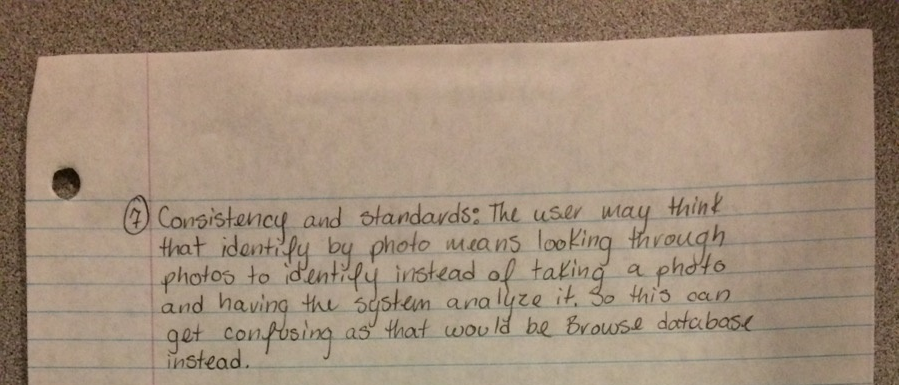 ⑦ Consistency and standards: The user may think
that identify by photo means looking through
photos to identify instead of taking a photo
and having the system analyze it. So this can
get confusing as that would be Browse database
instead.